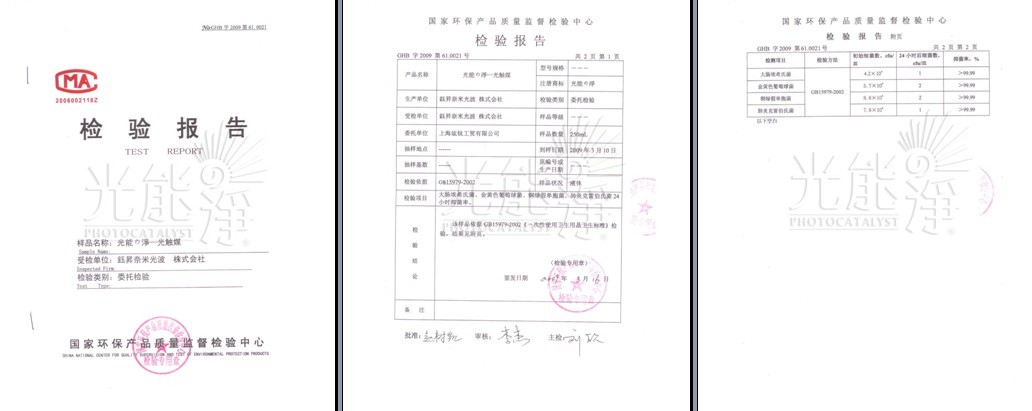 №GHB 字 2009 第 61.0021
MA
2006002118Z
检 验 报 告
TEST REPORT
光能の淨
PHOTOCATALYST
样品名称: 光能の淨一光触媒
Sample Name:
受检单位: 鈺昇奈米光波 株式会社
Inspected Firm
检验类别: 委托检验
Test Type:
国家环保产品质量监督检验中心
CHINA NATIONAL CENTER FOR QUALITY SUPERVISION AND TEST OF ENVIRONMENTAL PROTECTION PRODUCTS
检验专用章
国家环保产品质量监督检验中心
检 验 报 告
GHB 字 2009 第 61.0021 号 共 2 页 第 1 页
产品名称 光能の淨一光触媒 型号规格 ———
注册商标 光能の淨
生产单位 鈺昇奈米光波 株式会社 检验类别 委托检验
受检单位 鈺昇奈米光波 株式会社 样品等级 ———
委托单位 上海兹钛工贸有限公司 样品数量 250mL
抽样地点 —— 到样日期 2009 年 3 月 10 日
抽样基数 —— 原编号或生产日期 ———
检验依据 GB15979-2002 样品状况 液体
检验项目 大肠埃希氏菌、金黄色葡萄球菌、铜绿假单胞菌、肺炎克雷伯氏菌 24
小时抑菌率。
检验结论
该样品依据 GB15979-2002《一次性使用卫生用品卫生标准》检
验,结果见附页。
(检验专用章)
签发日期
检验专用章
备 注
批准: 审核: 主检:
光能の淨
PHOTOCATALYST
国家环保产品质量监督检验中心
检 验 报 告 附页
GHB 字 2009 第 61.0021 号 共 2 页 第 2 页
检测项目 检验方法 初始细菌数,cfu/皿 24 小时后细菌数,cfu/皿 抑菌率,%
大肠埃希氏菌 GB15979-2002 1 >99.99
金黄色葡萄球菌 2 >99.99
铜绿假单胞菌 2 >99.99
肺炎克雷伯氏菌 1 >99.99
以下空白
光能の淨
PHOTOCATALYST